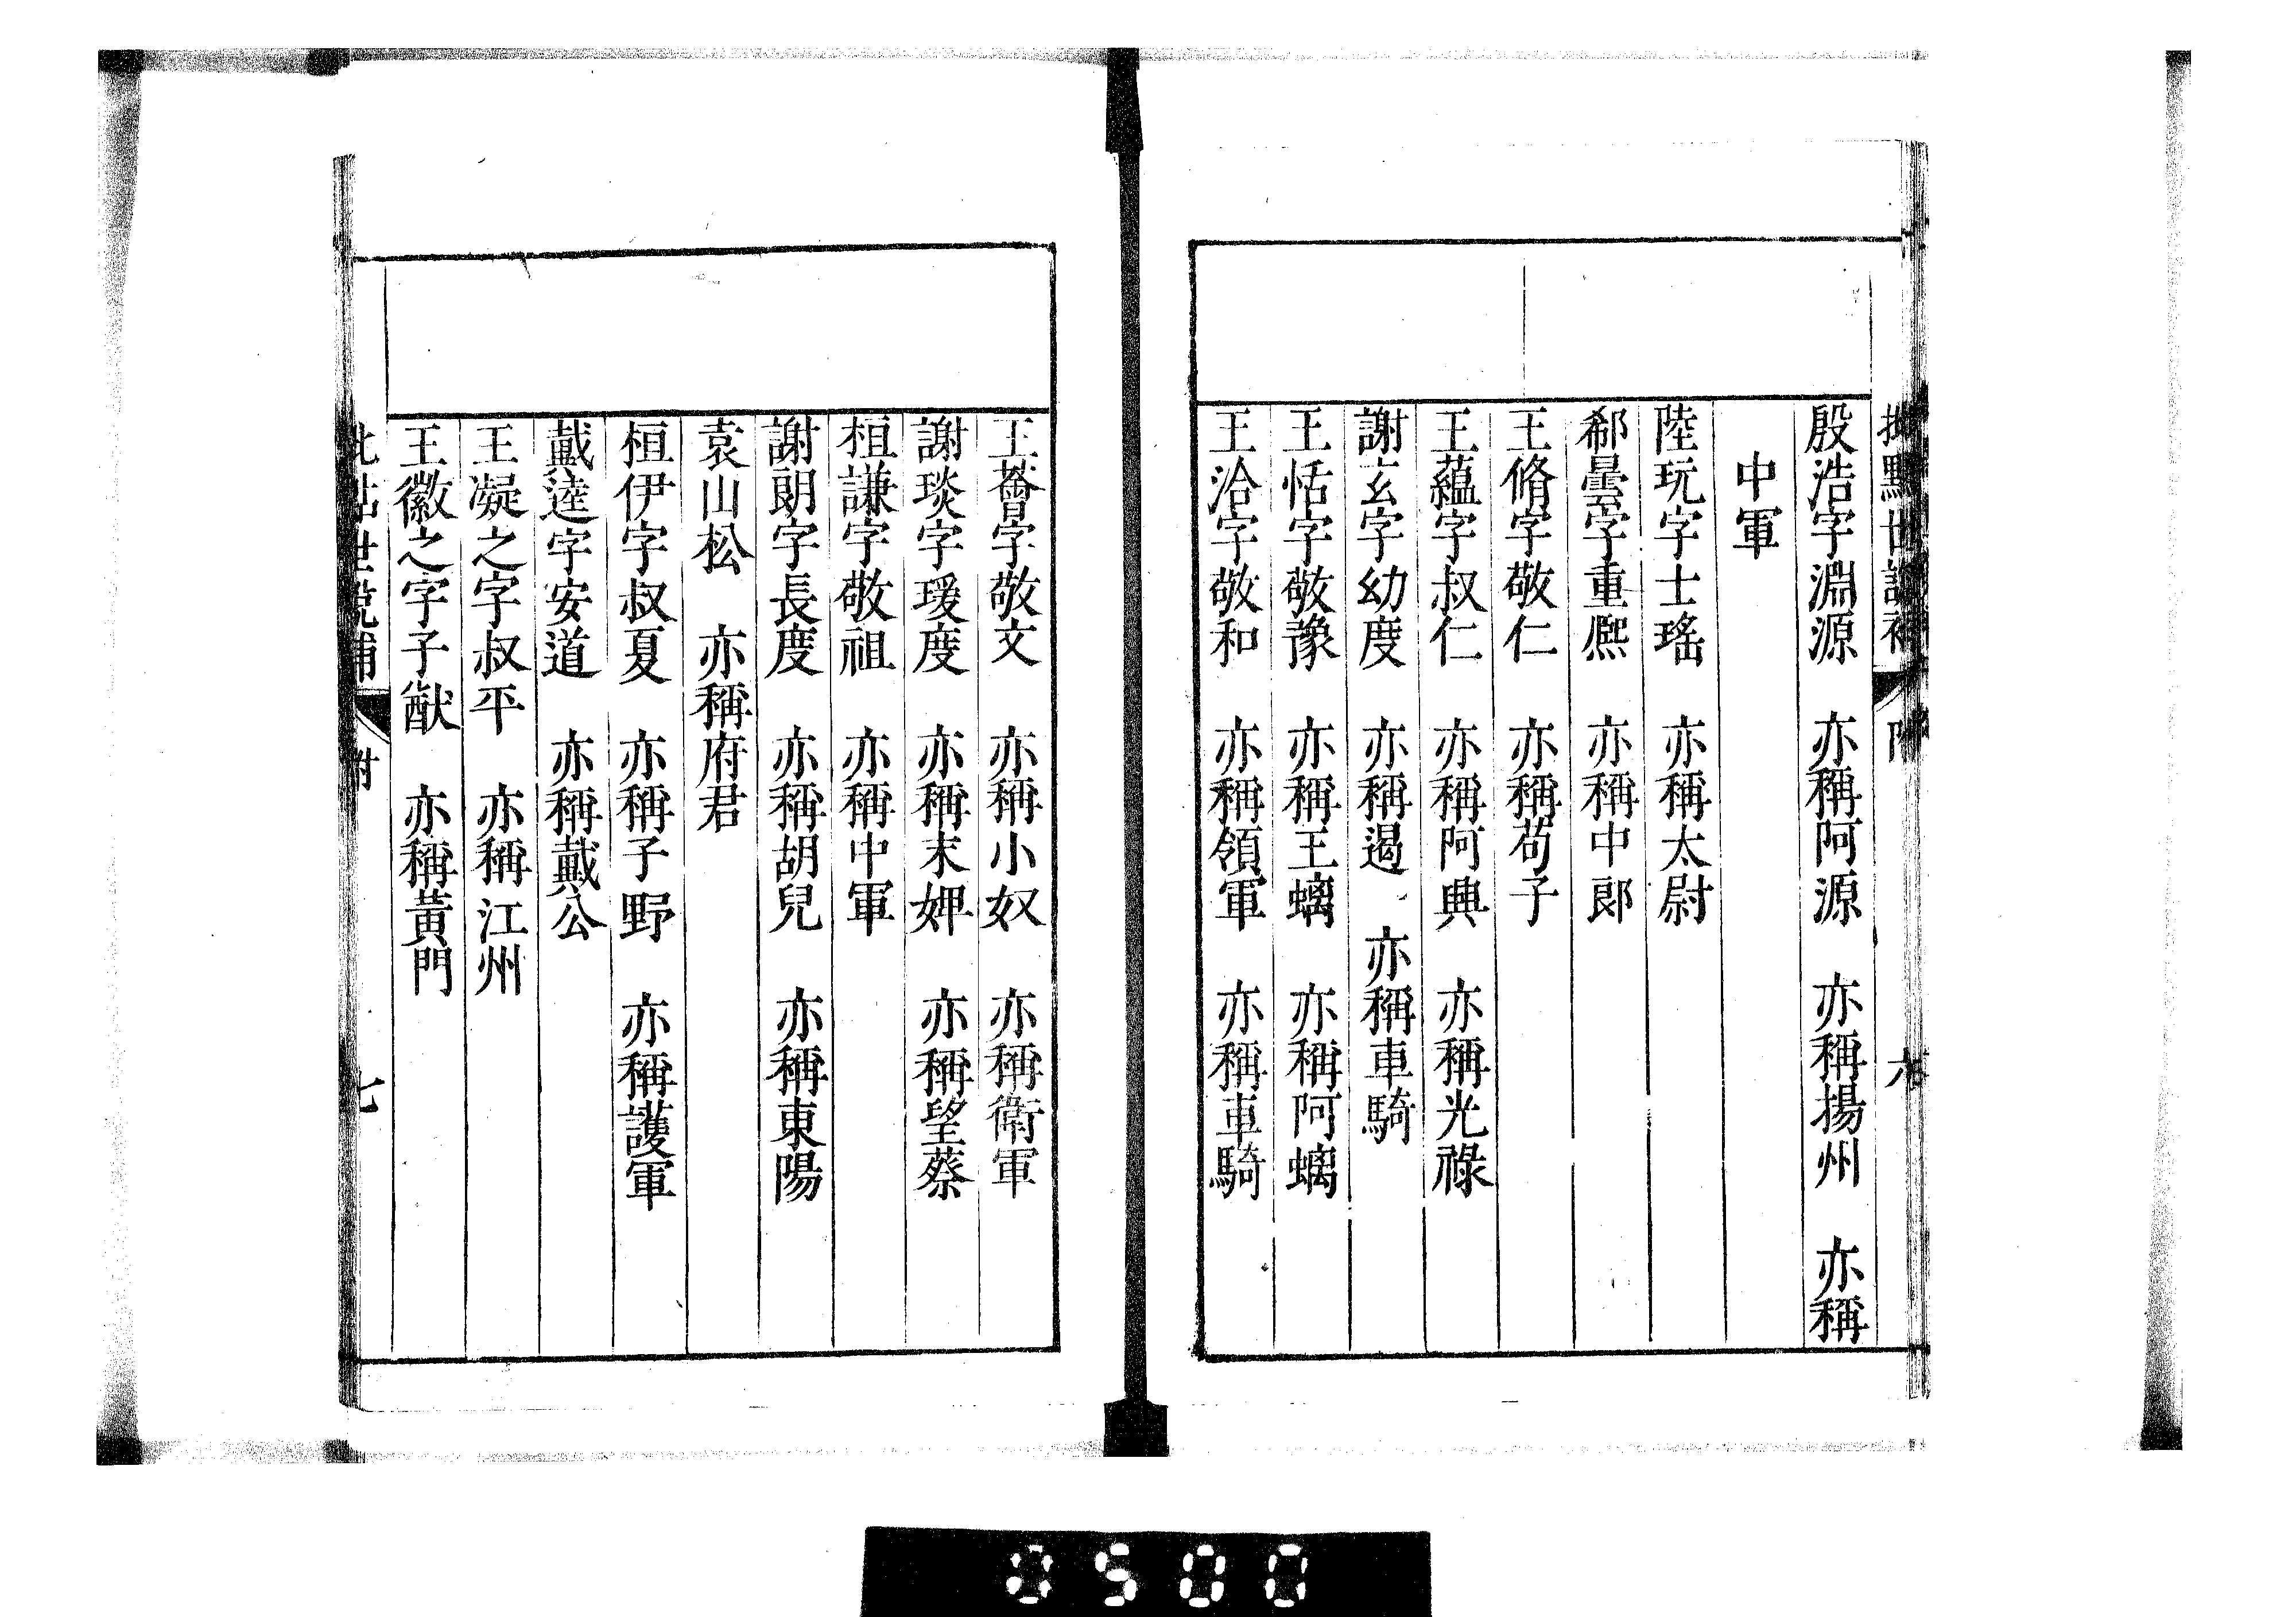 殷浩字淵源　亦稱阿源　亦稱揚州　亦稱
中軍
陸玩字士瑤　亦稱太尉
郗曇字重熈　亦稱中郎
王脩字敬仁　亦稱苟子
王蘊字叔仁　亦稱阿興　亦稱光祿
謝玄字幼度　亦稱遏　亦稱車騎
王恬字敬豫　亦稱王螭　亦稱阿螭
王洽字敬和　亦稱領軍　亦稱車騎
王薈字敬文　亦稱小奴　亦稱衛軍
謝琰字瑗度　亦稱末婢　亦稱望蔡
桓謙字敬祖　亦稱中軍
謝朗字長度　亦稱胡兒　亦稱東陽
袁山松　亦稱府君
桓伊字叔夏　亦稱子野　亦稱護軍
戴逵字安道　亦稱戴公
王凝之字叔平　亦稱江州
王徽之字子猷　亦稱黃門
七
0500